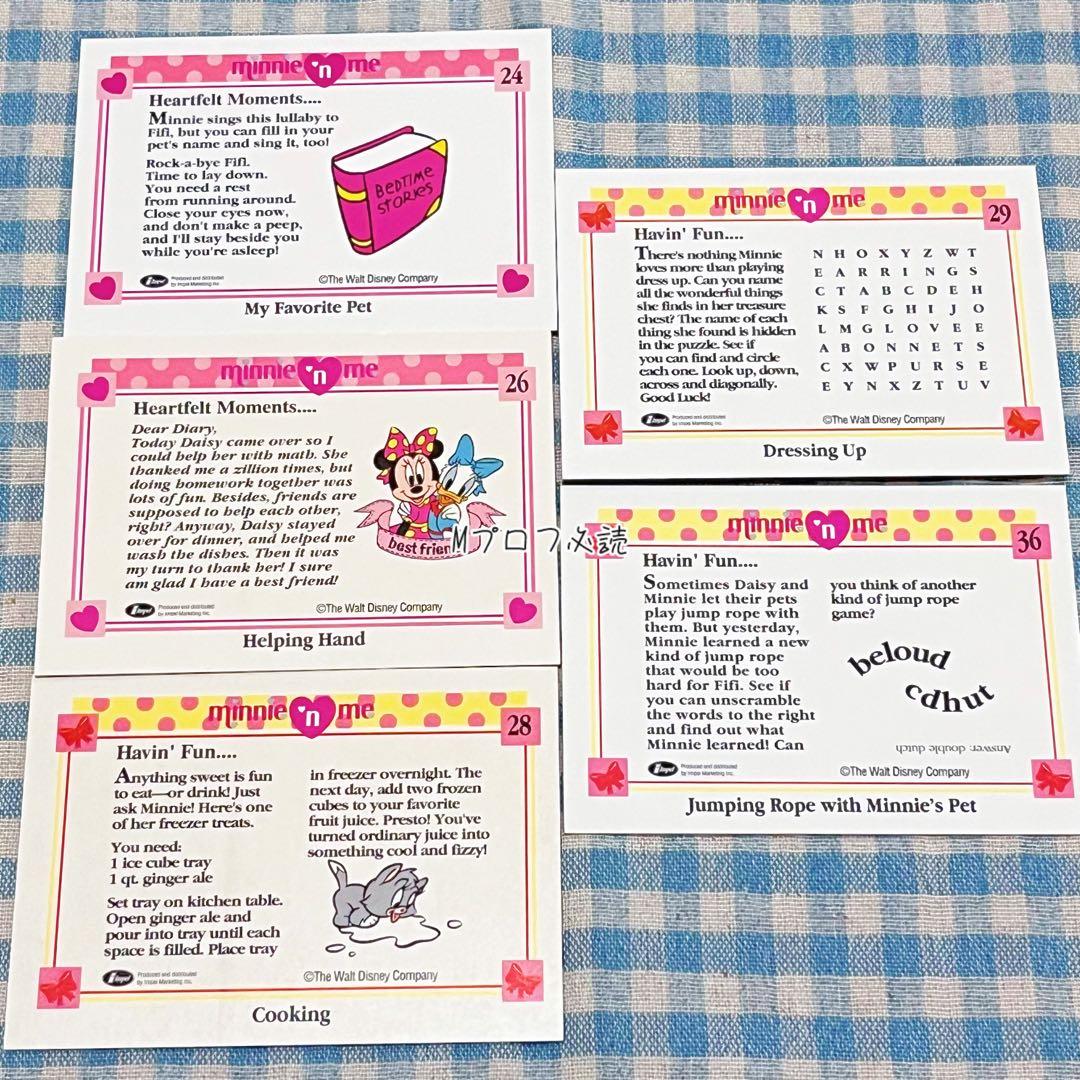 minnie 'n me
24
Heartfelt Moments....
Minnie sings this lullaby to
Fifi, but you can fill in your
pet's name and sing it, too!
Rock-a-bye Fifi.
Time to lay down.
You need a rest
from running around.
Close your eyes now,
and don't make a peep,
and I'll stay beside you
while you're asleep!
BEDTIME
STORIES
Impel
Produced and distributed
by Impel Marketing Inc.
©The Walt Disney Company
My Favorite Pet
minnie 'n me
26
Heartfelt Moments....
Dear Diary,
Today Daisy came over so I
could help her with math. She
thanked me a zillion times, but
doing homework together was
lots of fun. Besides, friends are
supposed to help each other,
right? Anyway, Daisy stayed
over for dinner, and helped me
wash the dishes. Then it was
my turn to thank her! I sure
am glad I have a best friend!
best frien
Impel
Produced and distributed
by Impel Marketing Inc.
©The Walt Disney Company
Helping Hand
minnie 'n me
28
Havin' Fun....
Anything sweet is fun
to eat—or drink! Just
ask Minnie! Here's one
of her freezer treats.
You need:
1 ice cube tray
1 qt. ginger ale
Set tray on kitchen table.
Open ginger ale and
pour into tray until each
space is filled. Place tray
in freezer overnight. The
next day, add two frozen
cubes to your favorite
fruit juice. Presto! You've
turned ordinary juice into
something cool and fizzy!
Impel
Produced and distributed
by Impel Marketing Inc.
©The Walt Disney Company
Cooking
minnie 'n me
29
Havin' Fun....
There's nothing Minnie
loves more than playing
dress up. Can you name
all the wonderful things
she finds in her treasure
chest? The name of each
thing she found is hidden
in the puzzle. See if
you can find and circle
each one. Look up, down,
across and diagonally.
Good Luck!
N H O X Y Z W T
E A R R I N G S
C T A B C D E H
K S F G H I J O
L M G L O V E E
A B O N N E T S
C X W P U R S E
E Y N X Z T U V
Impel
Produced and distributed
by Impel Marketing Inc.
©The Walt Disney Company
Dressing Up
minnie 'n me
36
Havin' Fun....
Sometimes Daisy and
Minnie let their pets
play jump rope with
them. But yesterday,
Minnie learned a new
kind of jump rope
that would be too
hard for Fifi. See if
you can unscramble
the words to the right
and find out what
Minnie learned! Can
you think of another
kind of jump rope
game?
beloud
cdhut
Answer: double dutch
Impel
Produced and distributed
by Impel Marketing Inc.
©The Walt Disney Company
Jumping Rope with Minnie's Pet
Mプロフ必読